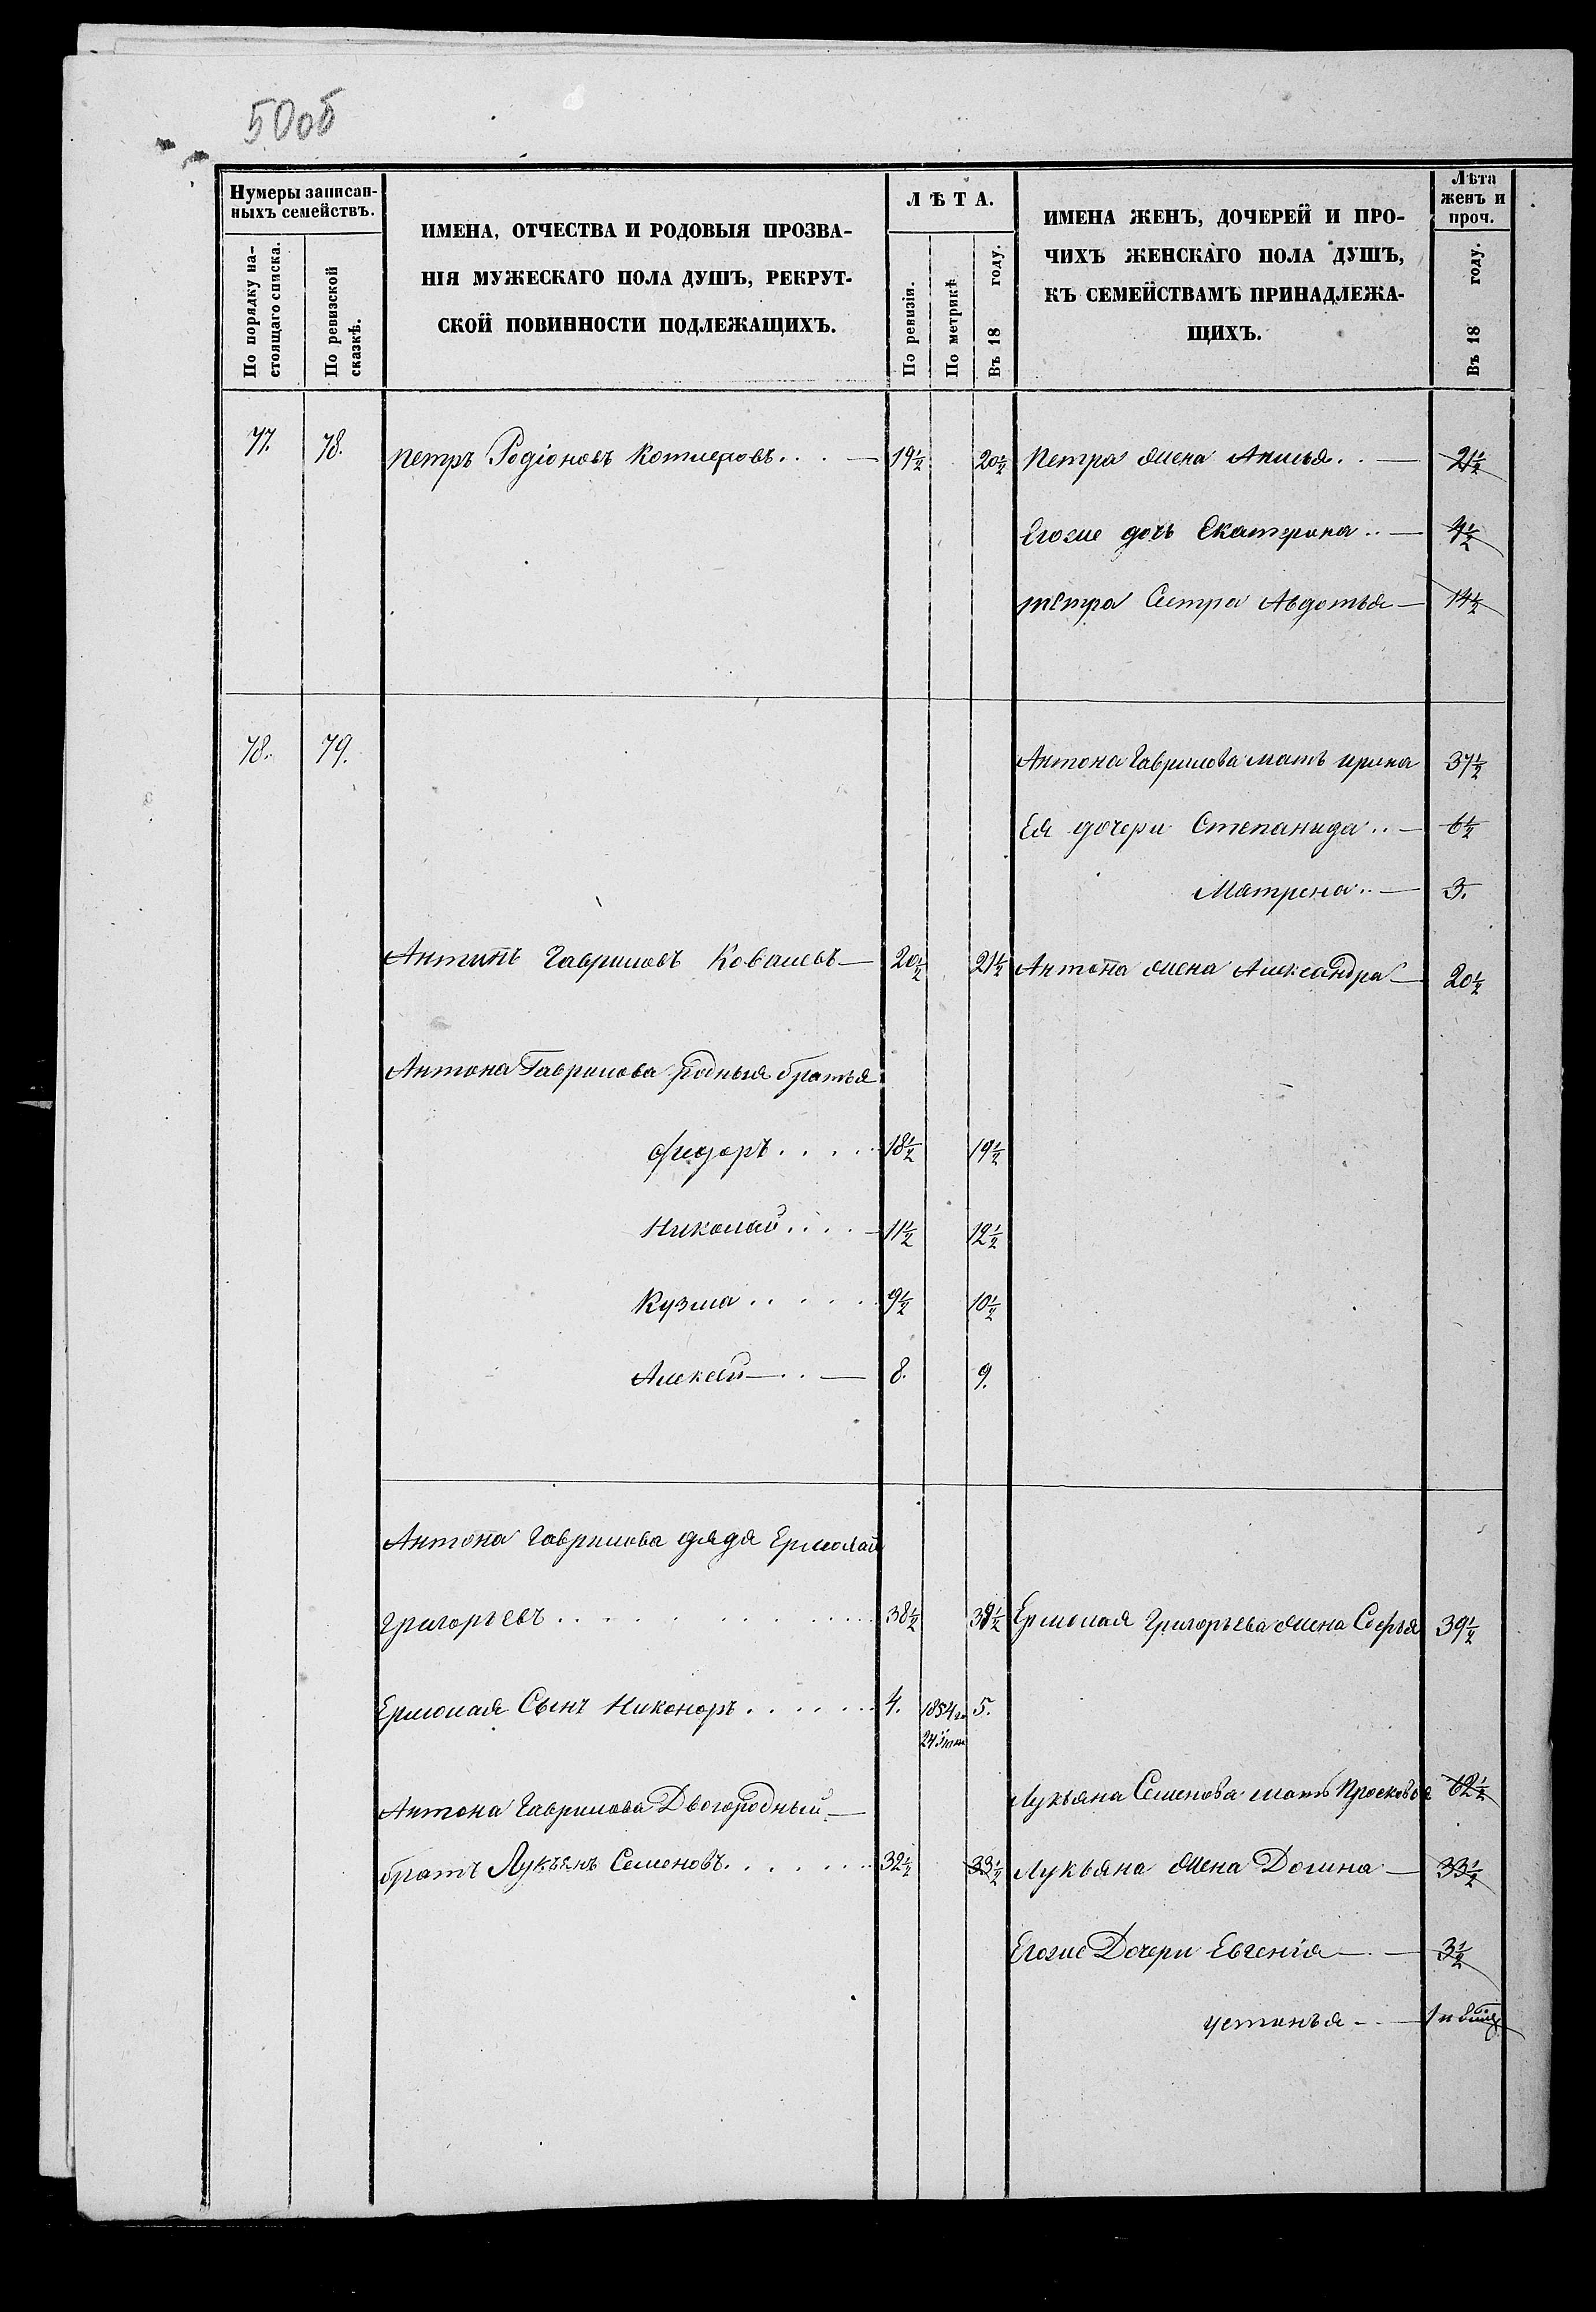 50об
Нумеры записан-
ныхъ семействъ.
По порядку на-
стоящаго списка.
По ревизской
сказкѣ.
ИМЕНА, ОТЧЕСТВА И РОДОВЫЯ ПРОЗВА-
НІЯ МУЖЕСКАГО ПОЛА ДУШЪ, РЕКРУТ-
СКОЙ ПОВИННОСТИ ПОДЛЕЖАЩИХЪ.
ЛѢТА.
По ревизіи.
По метрикѣ.
Въ 18 году.
ИМЕНА ЖЕНЪ, ДОЧЕРЕЙ И ПРО-
ЧИХЪ ЖЕНСКАГО ПОЛА ДУШЪ,
КЪ СЕМЕЙСТВАМЪ ПРИНАДЛЕЖА-
ЩИХЪ.
Лѣта
женъ и
проч.
Въ 18 году.
77. 78. Петръ Родіоновъ . . . — 19½ 20½ Петра жена . . — 21½
Егоже дочь Екатерина . . — 4½
Петра Сестра Авдотья — 14½
78. 79. Антона Гаврилова мать ирина 37½
Ея дочери Степанида . . — 6½
Матрена . . — 3.
Антипъ Гавриловъ Ковалевъ — 20½ 21½ Антона жена Александра — 20½
Антона Гаврилова родныя братья
Фиодоръ . . . . . 18½ 19½
Николай . . . . — 11½ 12½
Кузма . . . . . . 9½ 10½
Алексей — . . — 8. 9.
Антона Гаврилова дядя Ермолай
Григорьевъ . . . . . . . . . 38½ 39½ Ермолая Григорьева жена Софья 39½
Ермолая Сынъ Никоноръ . . . . . . 4. 1854 го 5.
24
Лукьяна Семенова мать Просковья 62½
Антона Гаврилова Двоюродный —
братъ Лукьянъ Семеновъ . . . . . . 32½ 33½ Лукьяна жена Домна — 33½
Егоже Дочери Евгенія — . — 3½
устинья — . — 1